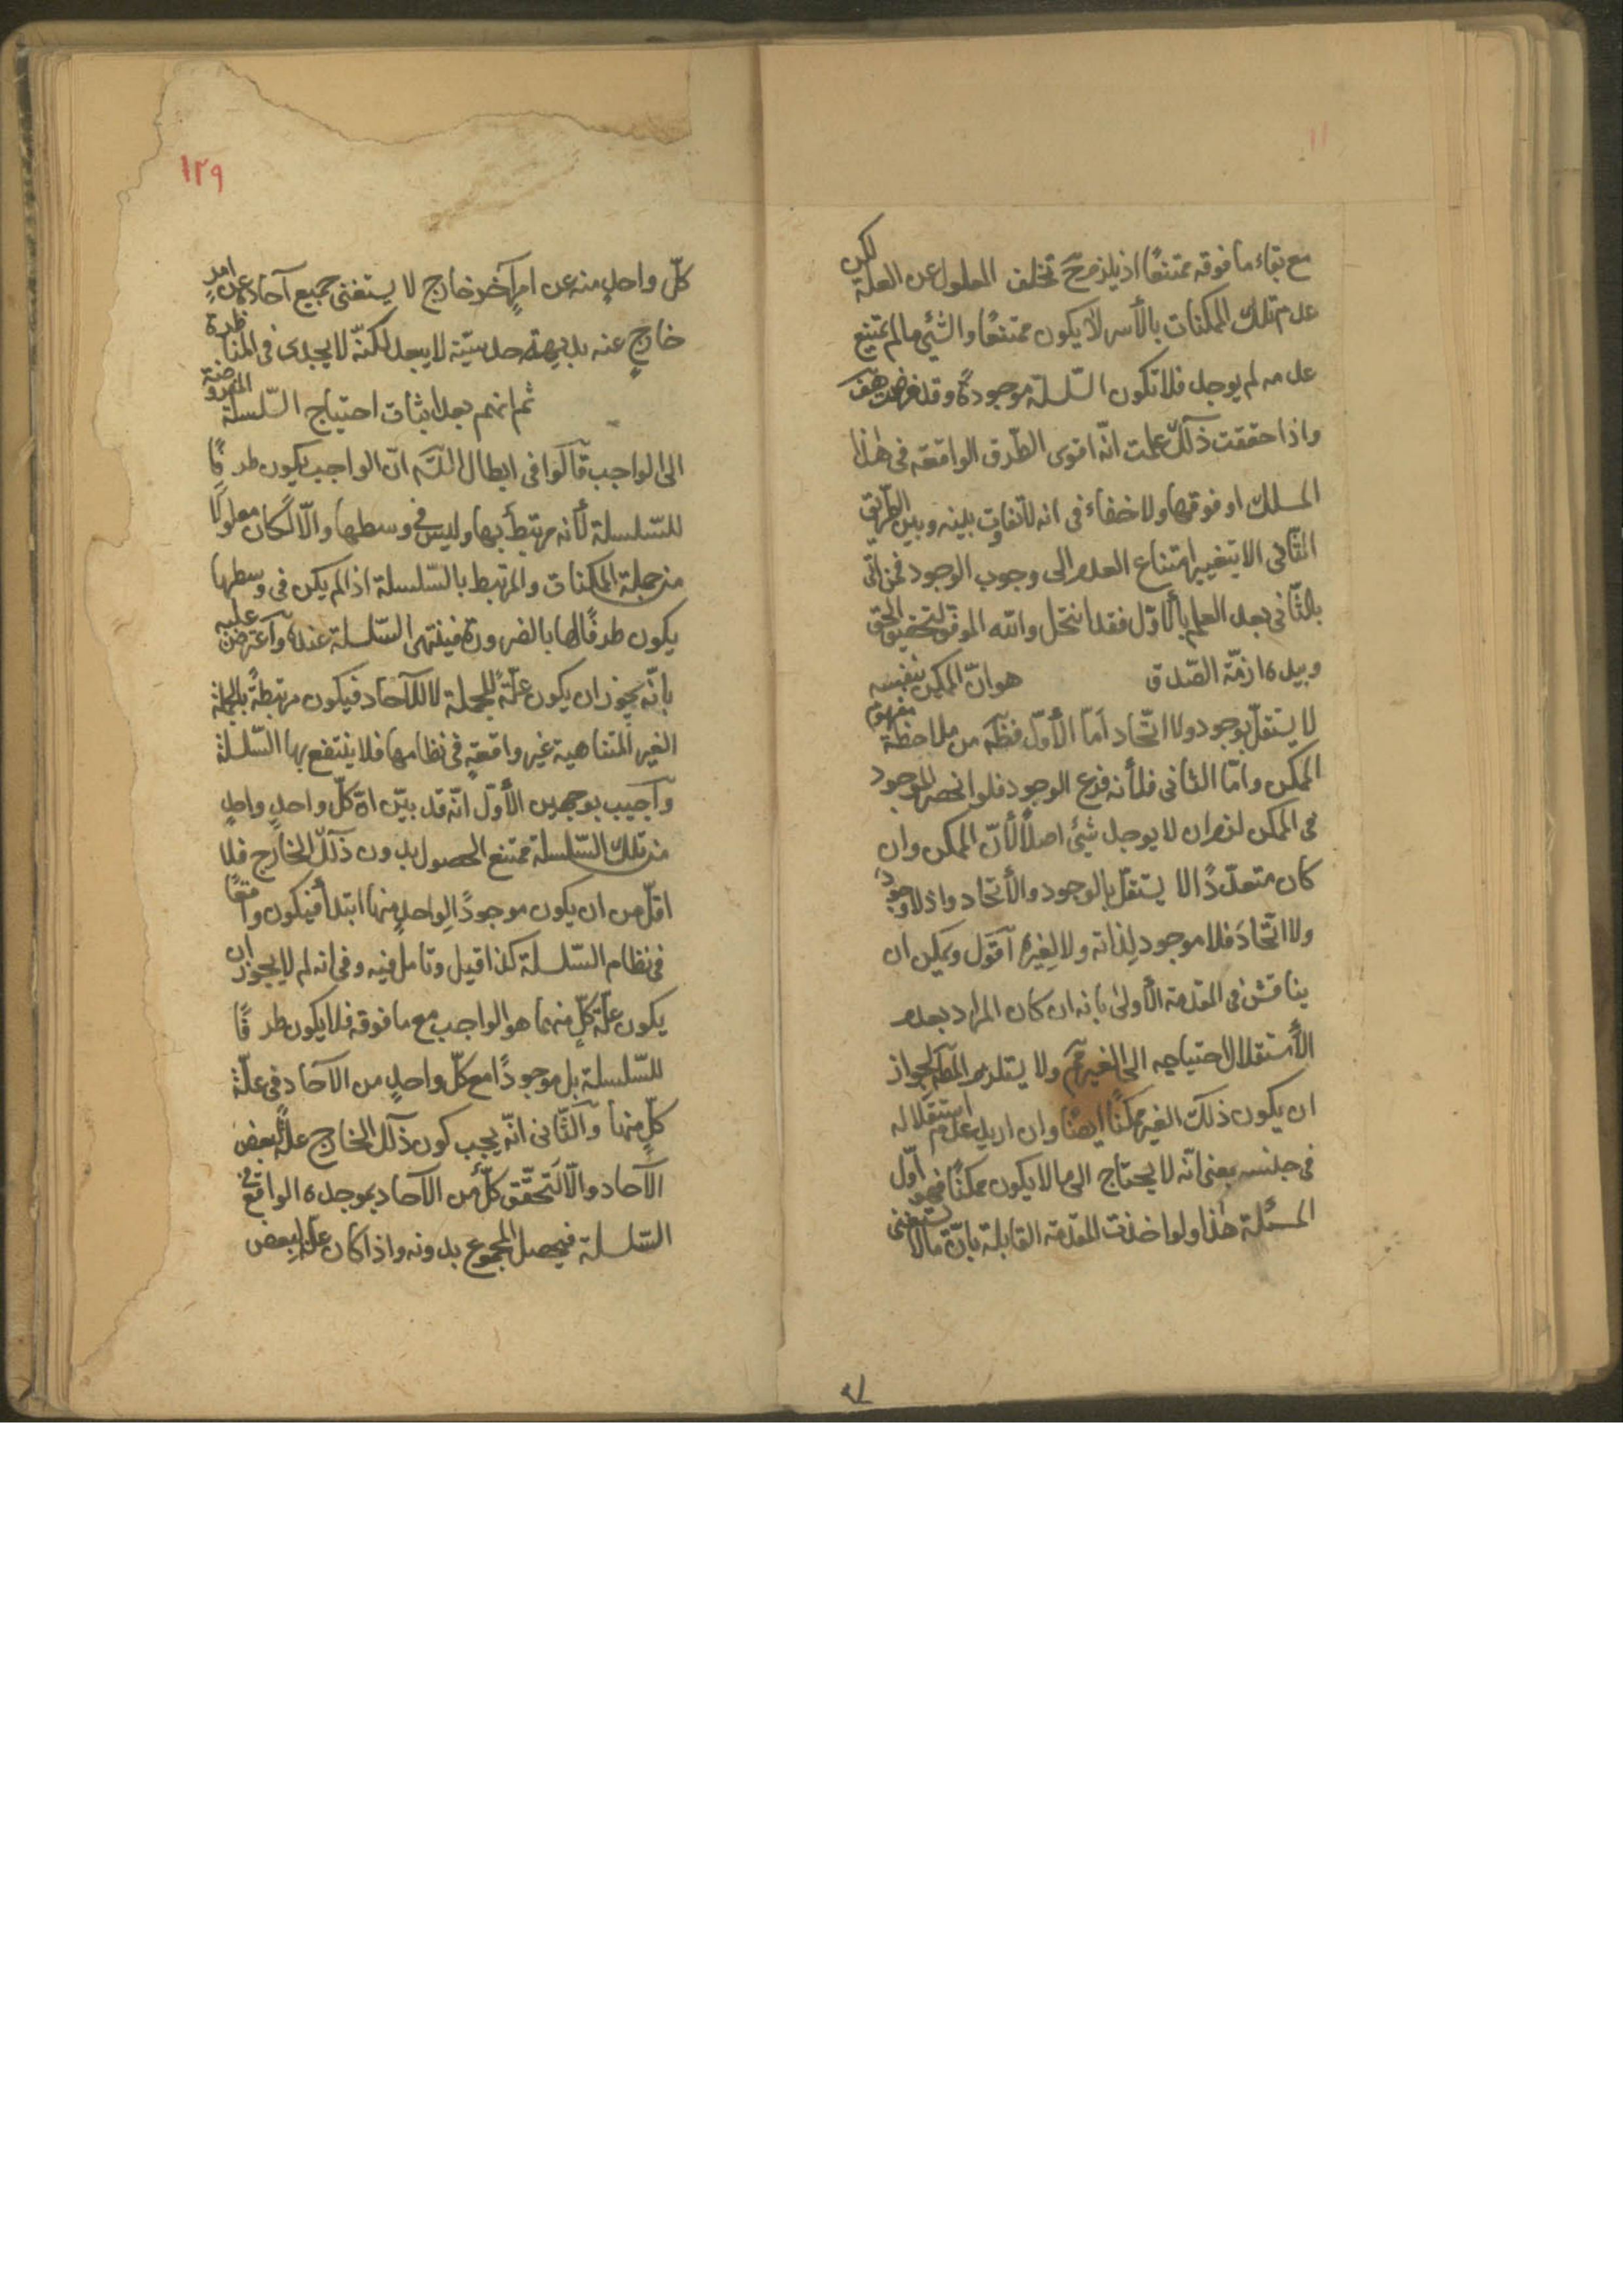 ١١
مع بقاء ما فوقه ممتنعًا اذ يلزم ح تخلف المعلول عن العلة لكن
عدم تلك الممكنات بالأسر لا يكون ممتنعًا والشئ ما لم يمتنع
عدمه لم يوجد فلا تكون السّلسلة موجودةً وقد فرضت هف
واذا حققت ذلك علمت انّه اقوى الطّرق الواقعة فى هذا
المسلك او فوقها ولا خفاء فى انه لا تفاوت بينه وبين الطّريق
الثّانى الا بتغيير امتناع العدم الى وجوب الوجود فمن اتى
بالثّانى بعد العلم بالأوّل فقد انتحل والله الموفق لتحقيق الحق
وبيده ازمّة الصّدق هو انّ الممكن بنفسه
لا يستقلّ بوجود ولا اتّحاد امّا الأوّل فظ من ملاحظة مفهوم
الممكن وامّا الثانى فلأنه فرع الوجود فلو انحصر الموجود
فى الممكن لزم ان لا يوجد شئ اصلًا لأنّ الممكن وان
كان متعدّدًا لا يستقلّ بالوجود والأتحاد واذ لا وجود
ولا اتّحادَ فلا موجود لذاته ولا لغيره اقول ويمكن ان
يناقش فى المقدمة الأولى بانه ان كان المراد بعدم
الأستقلال احتياجه الى الغير فم ولا يستلزم المط لجواز
ان يكون ذلك الغير ممكنًا ايضًا وان اريد عدم استقلاله
فى جنسه بمعنى انّه لا يحتاج الى ما لا يكون ممكنًا فهو اوّل
المسئلة هذا ولو اخذت المقدّمة القابلة بانّ ما لا يستغنى
١٢٩
كلّ واحدٍ منه عن امرٍ آخر خارج لا يستغنى جميع آحاده عن امرٍ
خارجٍ عنه بديهة حدسيّة لا يبعد لكنّه لا يجدى فى المناظرة
ثم انهم بعد اثبات احتياج السّلسلة المفروضة
الى الواجب قالوا فى ابطال التس انّ الواجب يكون طرفًا
للسّلسلة لأنه مرتبط بها وليس فى وسطها والّا لكان معلولًا
من جملة الممكنات والمرتبط بالسّلسلة اذا لم يكن فى وسطها
يكون طرفًا لها بالضرورة فينتهى السّلسلة عنده واعترض عليه
بانّه يجوز ان يكون علّةً للجملة لا للآحاد فيكون مرتبطةً بالجملة
الغير المتناهية غير واقعةٍ فى نظامها فلا ينتفع بها السّلسلة
واجيب بوجهين الأوّل انّه قد بيّن انّ كلّ واحدٍ واحدٍ
من تلك السّلسلة ممتنع الحصول بدون ذلك الخارج فلا
اقلّ من ان يكون موجودًا لواحدٍ منها ابتداً فيكون واقعًا
فى نظام السّلسلة كذا قيل وتامل فيه وفى انه لم لا يجوز ان
يكون علّة كلٍّ منهما هو الواجب مع ما فوقه فلا يكون طرفًا
للسّلسلة بل موجودًا مع كلّ واحدٍ من الآحاد فى علّة
كلٍّ منها والثّانى انّه يجب كون ذلك الخارج علّةً لبعض
الآحاد والّا لتحقّق كلّ من الآحاد بموجده الواقع فى
السّلسلة فيحصل المجموع بدونه واذا كان علّة لبعض